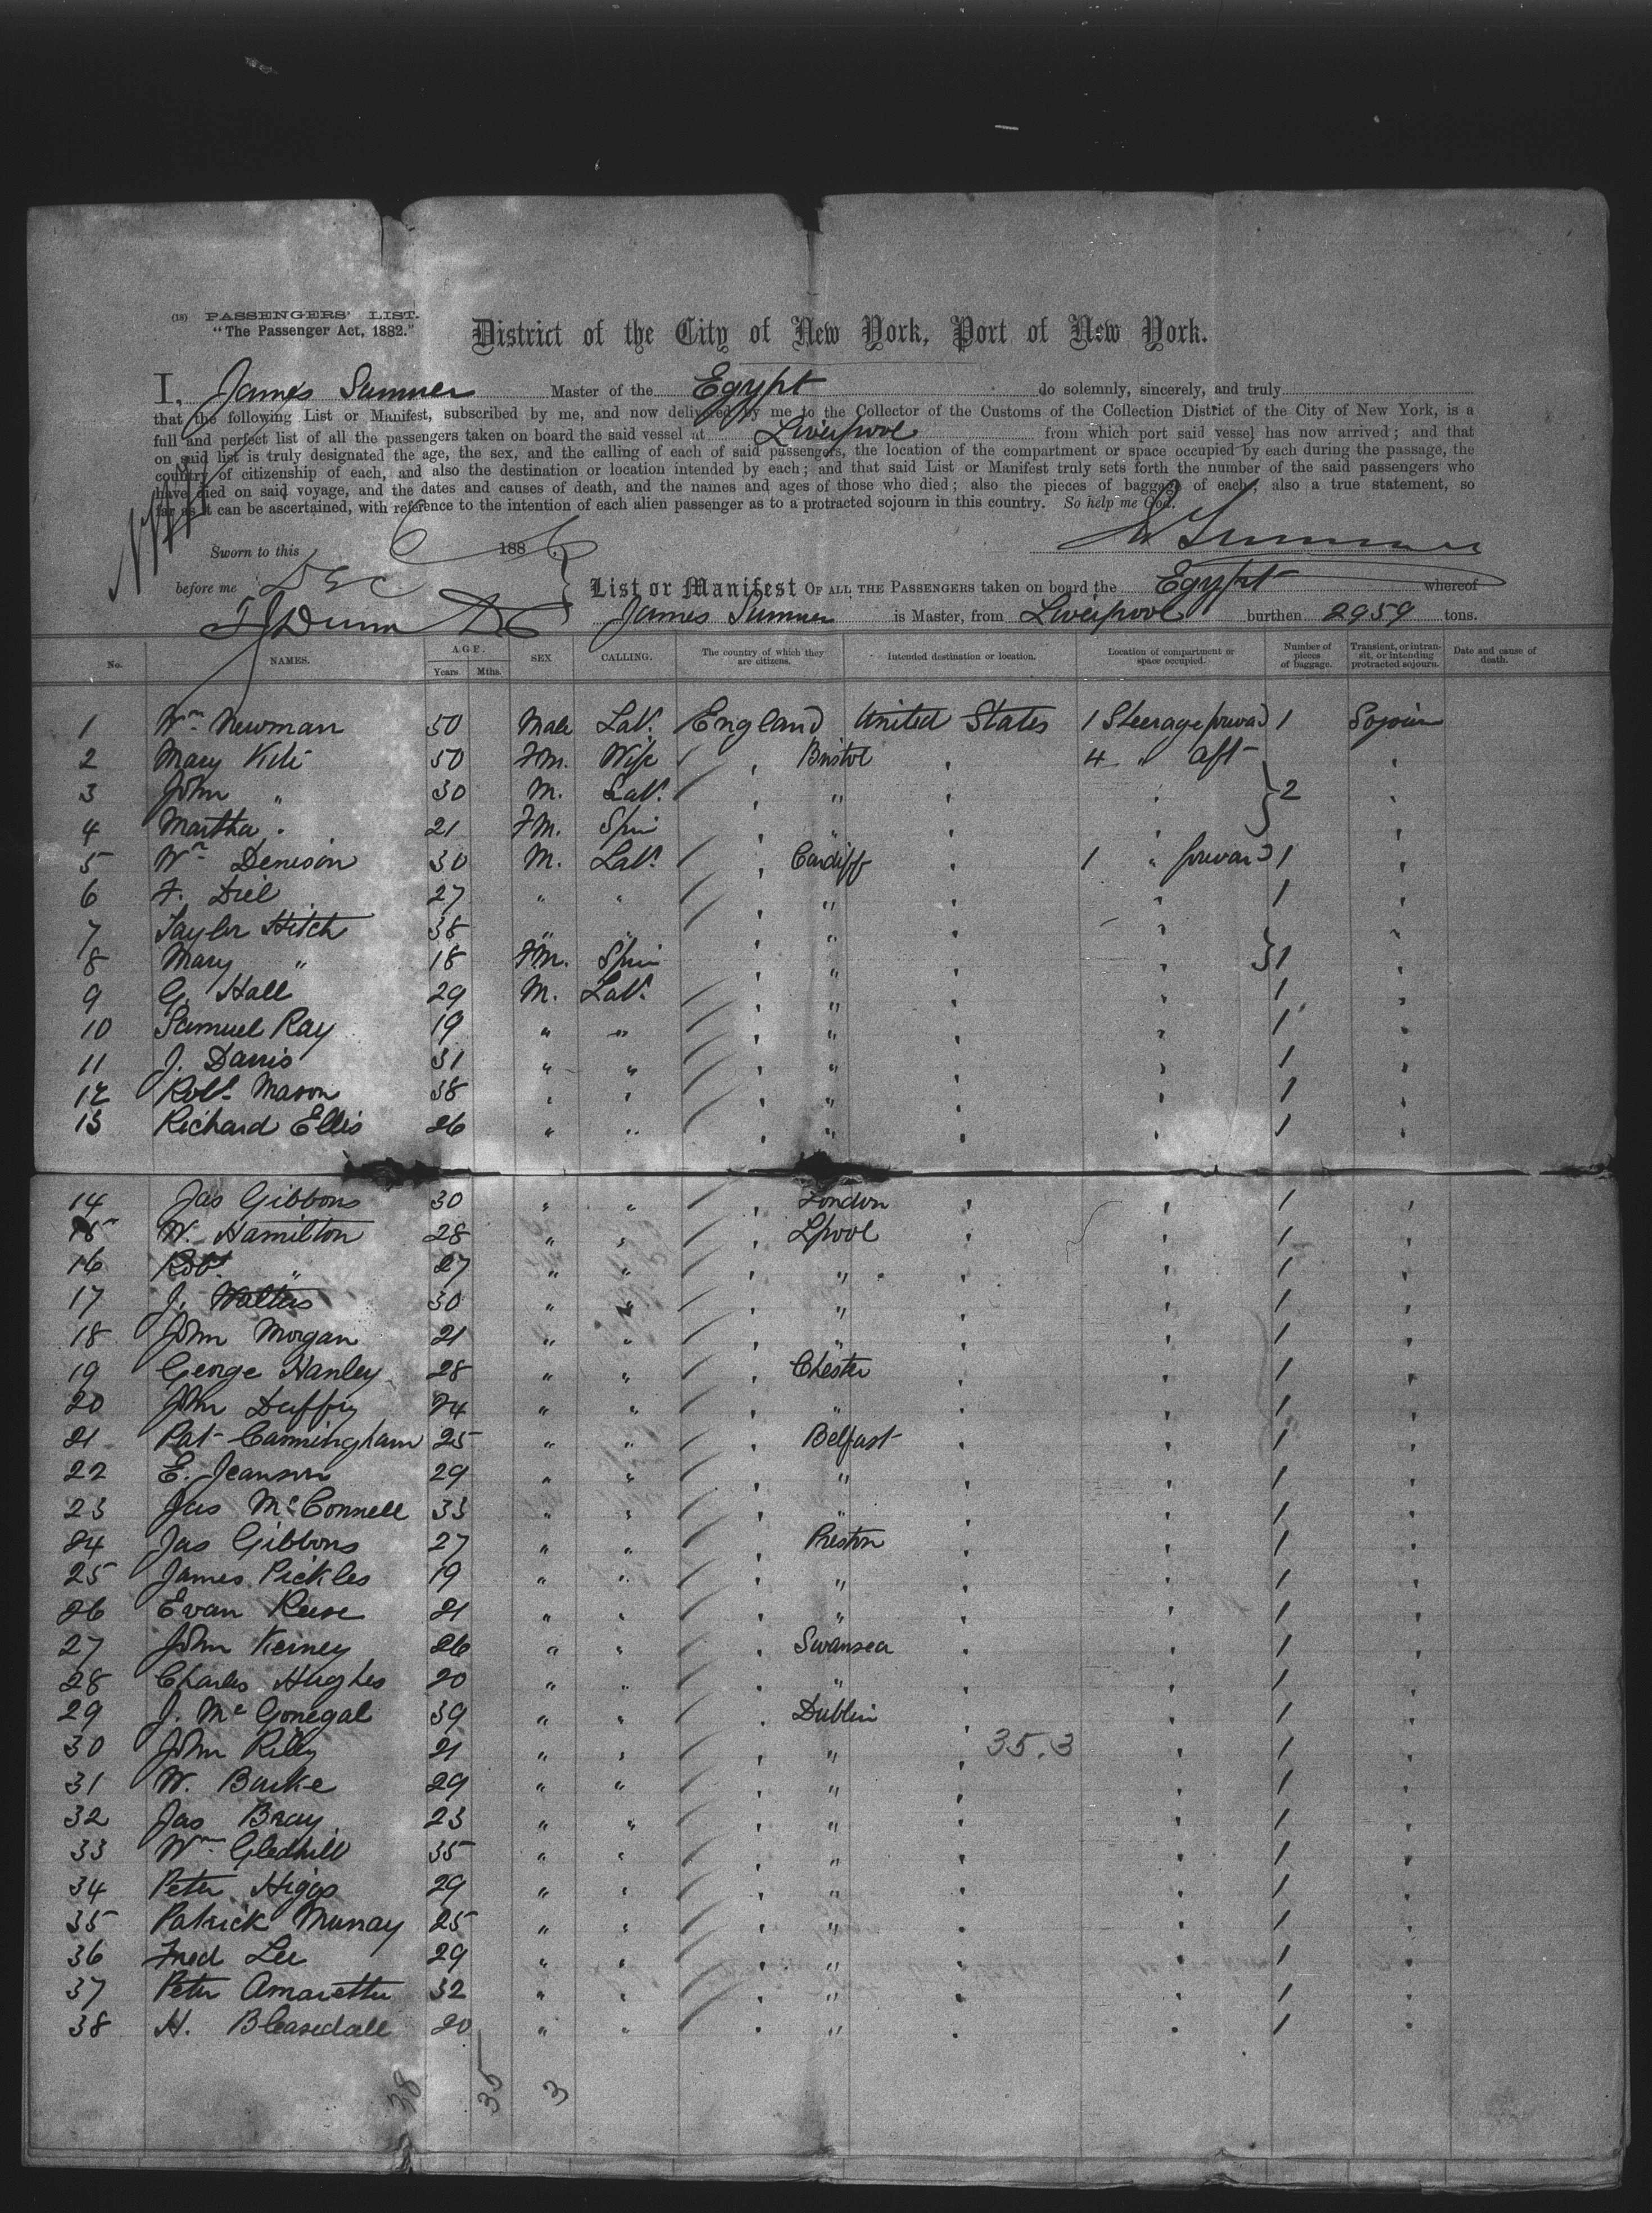 (18) PASSENGERS' LIST.
"The Passenger Act, 1882."
District of the City of New York, Port of New York.
I, James Sumner Master of the Egypt do solemnly, sincerely, and truly
that the following List or Manifest, subscribed by me, and now delivered by me to the Collector of the Customs of the Collection District of the City of New York, is a
full and perfect list of all the passengers taken on board the said vessel at Liverpool from which port said vessel has now arrived; and that
on said list is truly designated the age, the sex, and the calling of each of said passengers, the location of the compartment or space occupied by each during the passage, the
country of citizenship of each, and also the destination or location intended by each; and that said List or Manifest truly sets forth the number of the said passengers who
have died on said voyage, and the dates and causes of death, and the names and ages of those who died; also the pieces of baggage of each; also a true statement, so
far as it can be ascertained, with reference to the intention of each alien passenger as to a protracted sojourn in this country. So help me God.
Sworn to this 6 1886 Sumner
before me Dec
List or Manifest OF ALL THE PASSENGERS taken on board the Egypt whereof
James Sumner is Master, from Liverpool burthen 2959 tons.
No. NAMES. AGE. Years. Mths. SEX CALLING. The country of which they are citizens. Intended destination or location. Location of compartment or space occupied. Number of pieces of baggage. Transient, or intransit, or intending protracted sojourn. Date and cause of death.
1 Wm Newman 50 Male Labr England United States 1 Steerage forward 1 Sojourn
2 Mary 50 Fm. Wife " Bristol " 4 " Aft "
3 John " 30 M. Labr " " " " } 2 "
4 Martha " 21 Fm. Spin " " " " "
5 Wm Denison 30 M. Labr " Cardiff " 1 " forward 1 "
6 F. Diel 27 " " " " " " 1 "
7 Taylor Hitch 38 " " " " " " "
8 Mary " 18 Fm. Spin " " " " } 1 "
9 G. Hall 29 M. Labr " " " " 1 "
10 Samuel Ray 19 " " " " " " 1 "
11 J. Davis 31 " " " " " " 1 "
12 Robt Mason 38 " " " " " " 1 "
13 Richard Ellis 26 " " " " " " 1 "
14 Jas Gibbons 30 " " " London " " 1 "
15 W. Hamilton 28 " " " Lpool " " 1 "
16 Robt " 27 " " " " " " 1 "
17 J. Walters 30 " " " " " " 1 "
18 John Morgan 21 " " " " " " 1 "
19 George Hanley 28 " " " Chester " " 1 "
20 John Duffy 24 " " " " " " 1 "
21 Pat Cunningham 25 " " " Belfast " " 1 "
22 E. Jeanson 29 " " " " " " 1 "
23 Jas McConnell 33 " " " " " " 1 "
24 Jas Gibbons 27 " " " Preston " " 1 "
25 James Pickles 19 " " " " " " 1 "
26 Evan Reese 21 " " " " " " 1 "
27 John Kerney 26 " " " Swansea " " 1 "
28 Charles Hughes 20 " " " " " " 1 "
29 J. McGonegal 39 " " " Dublin " " 1 "
30 John Rilly 21 " " " " " 35.3 " 1 "
31 W. Burke 29 " " " " " " 1 "
32 Jas Bray 23 " " " " " " 1 "
33 Wm Gledhill 35 " " " " " " 1 "
34 Peter Higgs 29 " " " " " " 1 "
35 Patrick Murray 25 " " " " " " 1 "
36 Fred Lee 29 " " " " " " 1 "
37 Peter Amaretta 32 " " " " " " 1 "
38 H. Bleasedall 20 " " " " " " 1 "
38 35 3